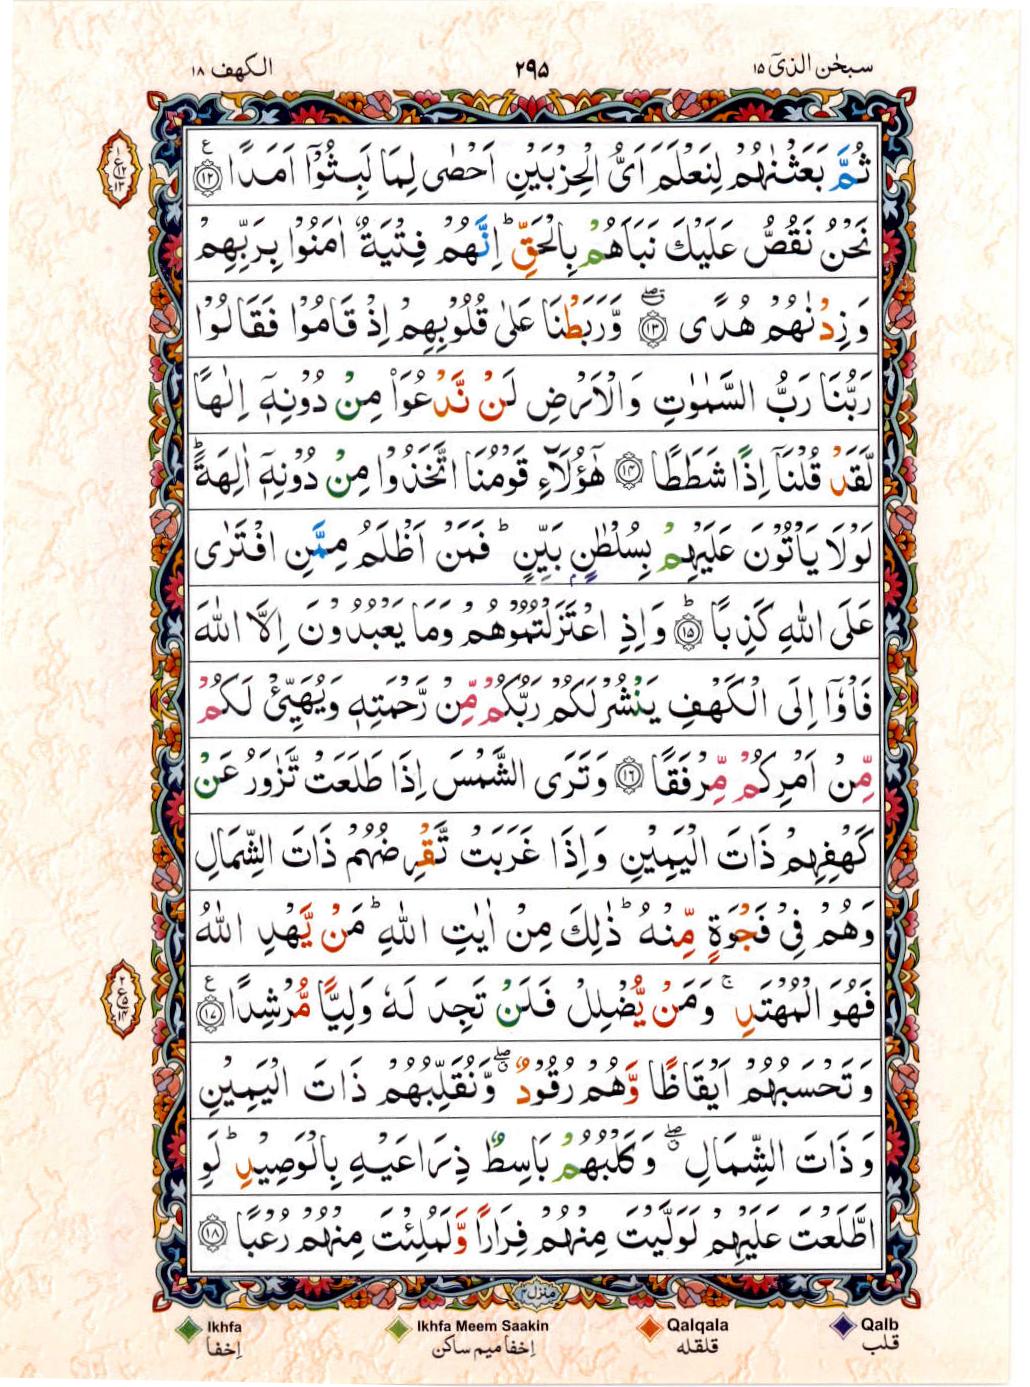 سبحٰن الذیٓ ۱۵
۲۹۵
الكهف ۱۸
ثُمَّ بَعَثْنٰهُمْ لِنَعْلَمَ اَىُّ الْحِزْبَيْنِ اَحْصٰى لِمَا لَبِثُوْۤا اَمَدًا ۱۲ ع
نَحْنُ نَقُصُّ عَلَيْكَ نَبَاَهُمْ بِالْحَقِّ ؕ اِنَّهُمْ فِتْيَةٌ اٰمَنُوْا بِرَبِّهِمْ
وَزِدْنٰهُمْ هُدًى ۱۳ وَّرَبَطْنَا عَلٰى قُلُوْبِهِمْ اِذْ قَامُوْا فَقَالُوْا
رَبُّنَا رَبُّ السَّمٰوٰتِ وَالْاَرْضِ لَنْ نَّدْعُوَا۟ مِنْ دُوْنِهٖۤ اِلٰهًا
لَّقَدْ قُلْنَاۤ اِذًا شَطَطًا ۱۴ هٰۤؤُلَآءِ قَوْمُنَا اتَّخَذُوْا مِنْ دُوْنِهٖۤ اٰلِهَةً ؕ
لَوْلَا يَاْتُوْنَ عَلَيْهِمْ بِسُلْطٰنٍۭ بَيِّنٍ ؕ فَمَنْ اَظْلَمُ مِمَّنِ افْتَرٰى
عَلَى اللّٰهِ كَذِبًا ؕ ۱۵ وَاِذِ اعْتَزَلْتُمُوْهُمْ وَمَا يَعْبُدُوْنَ اِلَّا اللّٰهَ
فَاْوٗۤا اِلَى الْكَهْفِ يَنْشُرْ لَكُمْ رَبُّكُمْ مِّنْ رَّحْمَتِهٖ وَيُهَيِّئْ لَكُمْ
مِّنْ اَمْرِكُمْ مِّرْفَقًا ۱۶ وَتَرَى الشَّمْسَ اِذَا طَلَعَتْ تَّزٰوَرُ عَنْ
كَهْفِهِمْ ذَاتَ الْيَمِيْنِ وَاِذَا غَرَبَتْ تَّقْرِضُهُمْ ذَاتَ الشِّمَالِ
وَهُمْ فِىْ فَجْوَةٍ مِّنْهُ ؕ ذٰلِكَ مِنْ اٰيٰتِ اللّٰهِ ؕ مَنْ يَّهْدِ اللّٰهُ
فَهُوَ الْمُهْتَدِ ۚ وَمَنْ يُّضْلِلْ فَلَنْ تَجِدَ لَهٗ وَلِيًّا مُّرْشِدًا ۱۷ ع
وَتَحْسَبُهُمْ اَيْقَاظًا وَّهُمْ رُقُوْدٌ ۖ وَّنُقَلِّبُهُمْ ذَاتَ الْيَمِيْنِ
وَذَاتَ الشِّمَالِ ۖ وَكَلْبُهُمْ بَاسِطٌ ذِرَاعَيْهِ بِالْوَصِيْدِ ؕ لَوِ
اطَّلَعْتَ عَلَيْهِمْ لَوَلَّيْتَ مِنْهُمْ فِرَارًا وَّلَمُلِئْتَ مِنْهُمْ رُعْبًا ۱۸
منزل ۴
Ikhfa
Ikhfa Meem Saakin
Qalqala
Qalb
اِخفا
اِخفا میم ساکن
قلقلہ
قلب